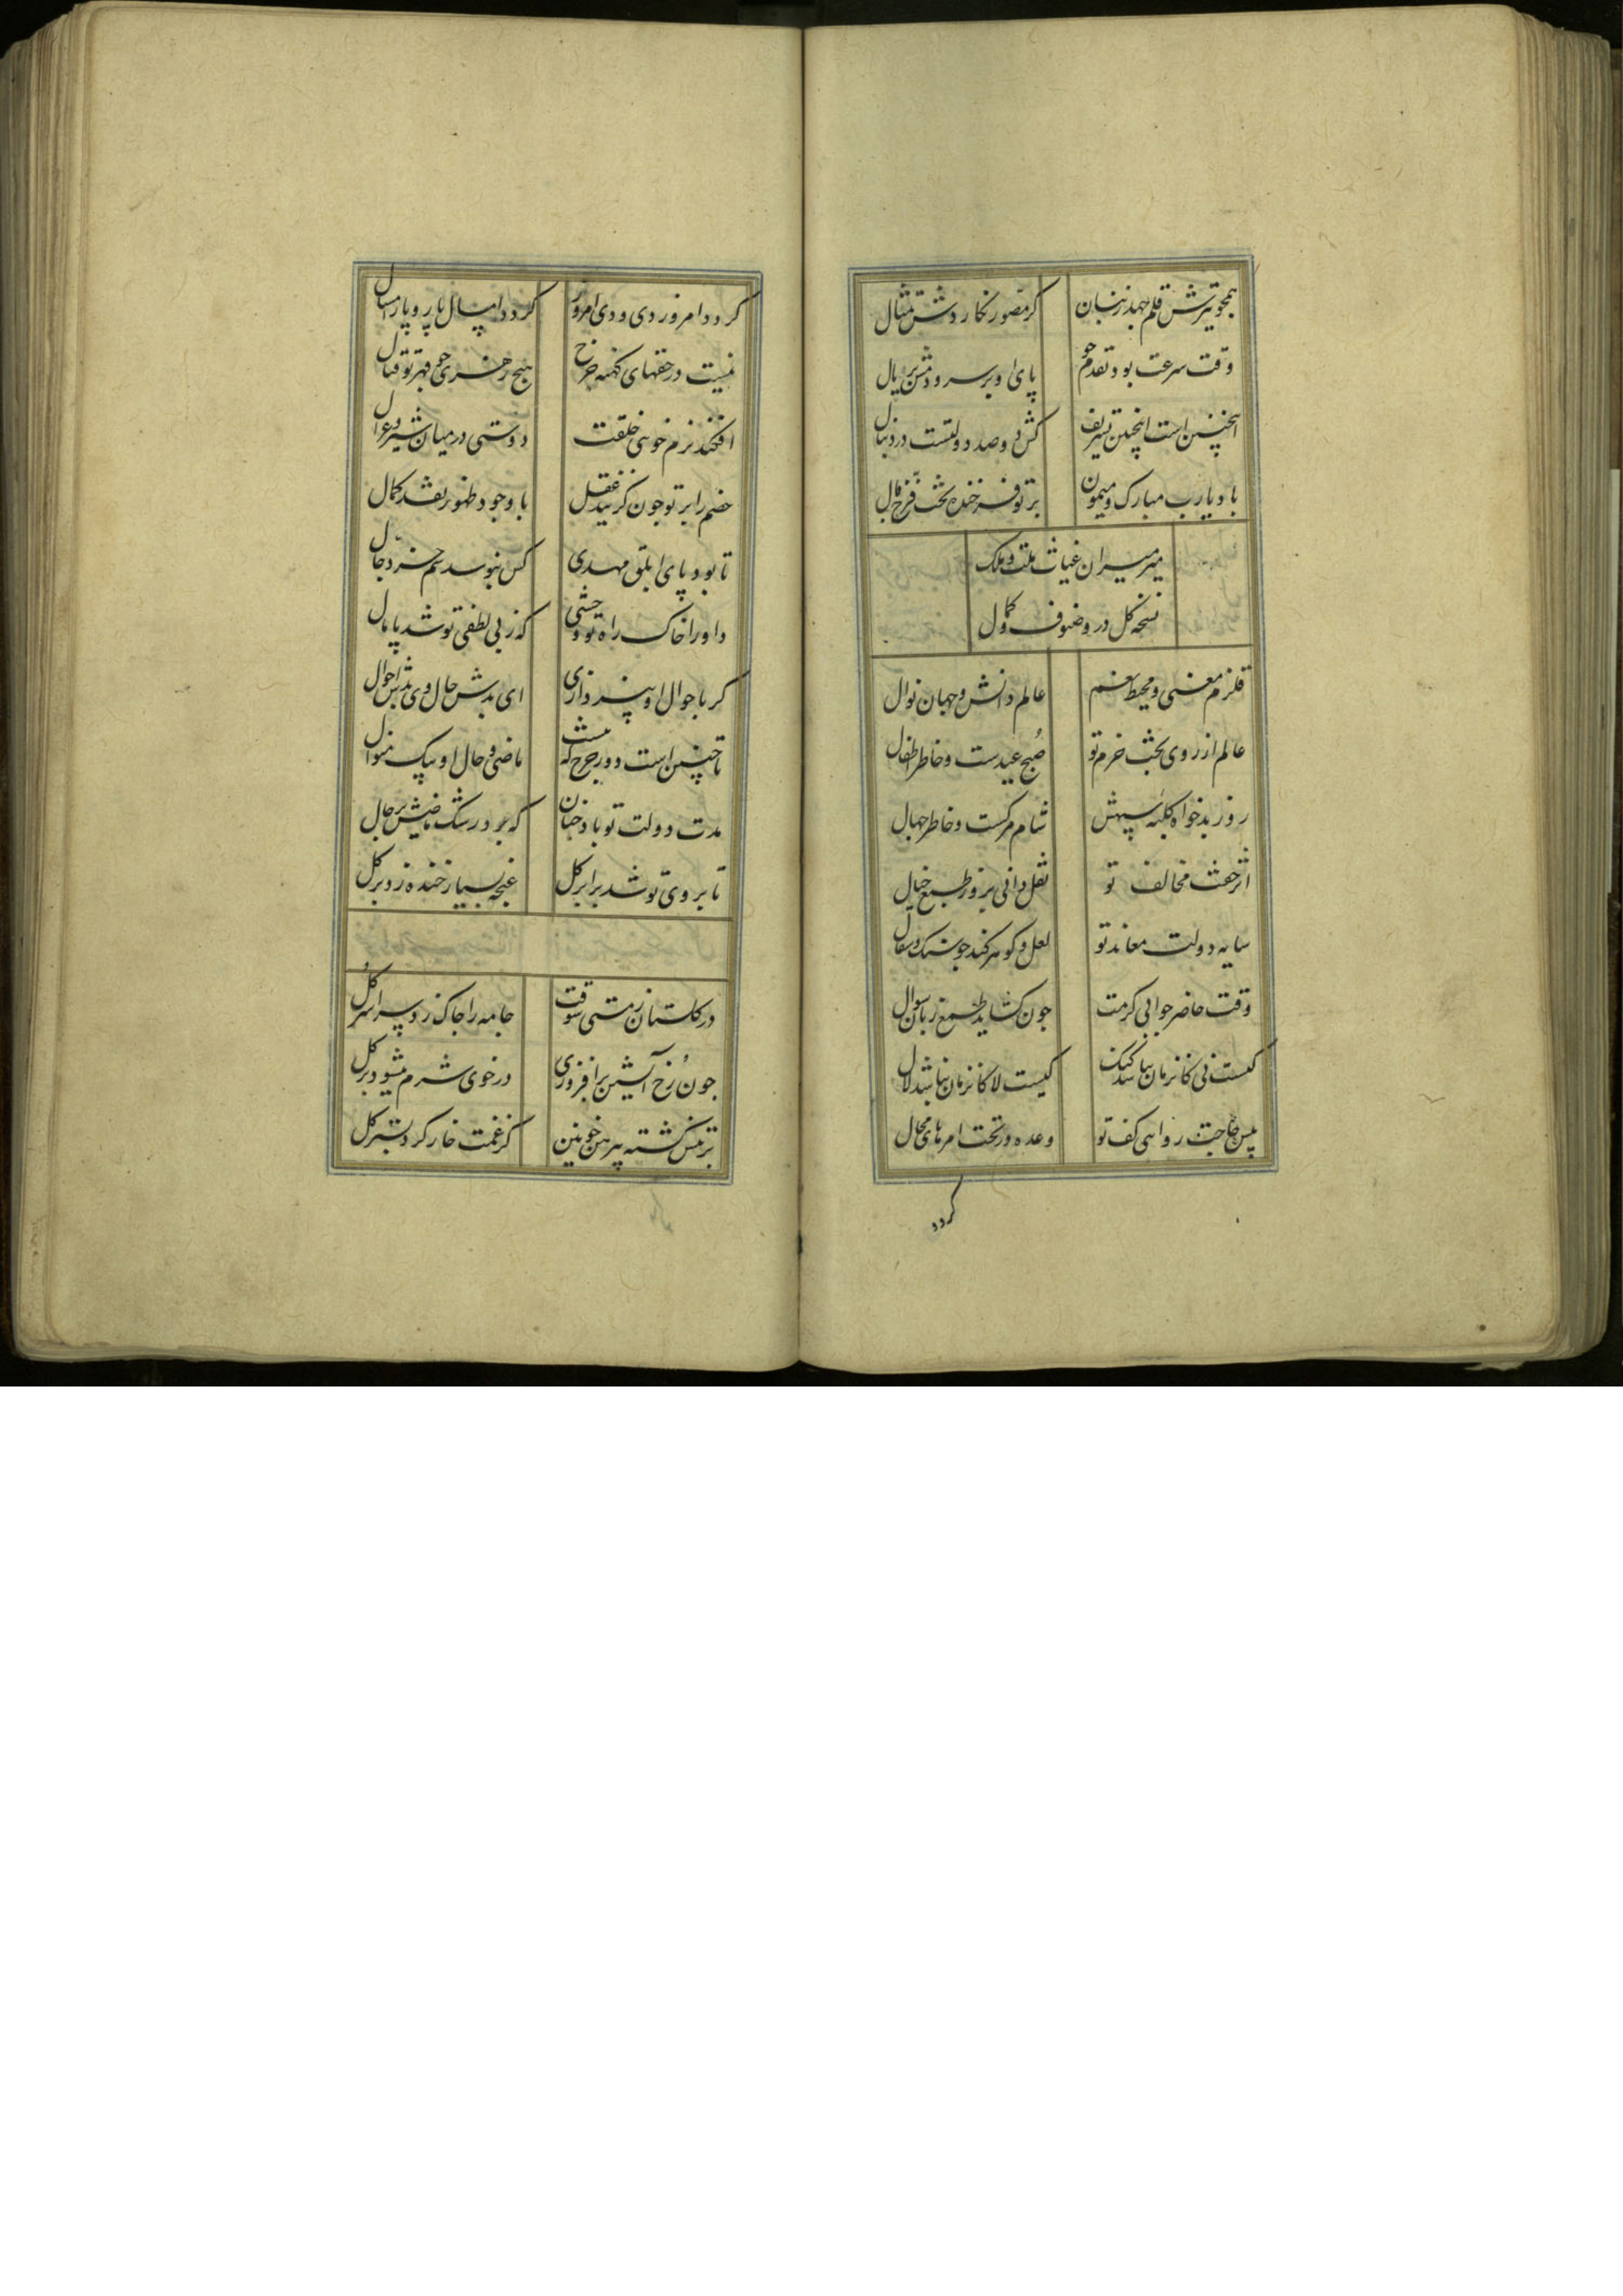 همچو تیرش قلم جهد ز بنان کر مصور نکاردش تمثال
وقت سرعت بود تقدم جو پای او بر سر و دمش بر یال
اینچنین است اینچنین تشریف کش دو صد دولتست در دنبال
باد یارب مبارک و میمون بر تو فرخنده بخت فرخ فال
میرمیران غیاث ملت و ملک
نسخه کل در وضوف و کمول
قلزم معنی و محیط نعم عالم دانش و جهان نوال
عالم از روی بخت خرم تو صبح عیدست و خاطر اطفال
روز بدخواه کلبه سیهش شام مرکست و خاطر جهال
اثر خفت مخالف تو نقل دانی بزور طبع خیال
سایه دولت معاند تو لعل و کوهر کند جو سنک و سفال
وقت حاضر جوابی کرمت جون کشاید طمع زبان سوال
کیست نی کانزمان نباشد کنک کیست لا کانزمان نباشد لال
پیش حاجت روایی کف تو وعده در تحت امرهای محال
کردد
کردد امروز دی و دی امروز کردد امسال پار و پار امسال
نیست در حقهای کهنه جرخ هیچ زهری جو قهر تو قتال
افکند نرم خویی خلقت دوستی در میان شیر و غزال
خصم را بر تو جون کزیند عقل با وجود ظهور نقد کمال
تا بود پای ابلق مهدی کس نبوسد سم خر دجال
داورا خاک راه تو وحشی که ز بی لطفی تو شد پامال
کر باحوال او نپردازی ای بدش حال وی بدش احوال
تا چنین است دور جرخ که نیست ماضی و حال او بیک منوال
مدت دولت تو باد جنان که برد رشک ماضیش بر حال
تا بروی تو شد برابر کل غنجه بسیار خنده زد بر کل
در کلستان ز مستی شوقت جامه را جاک زد سراسر کل
جون رخ آتشین برافروزی در خوی شرم میشود تر کل
ترمنش کشته پیرهن خونین کز غمت خار کرد بستر کل